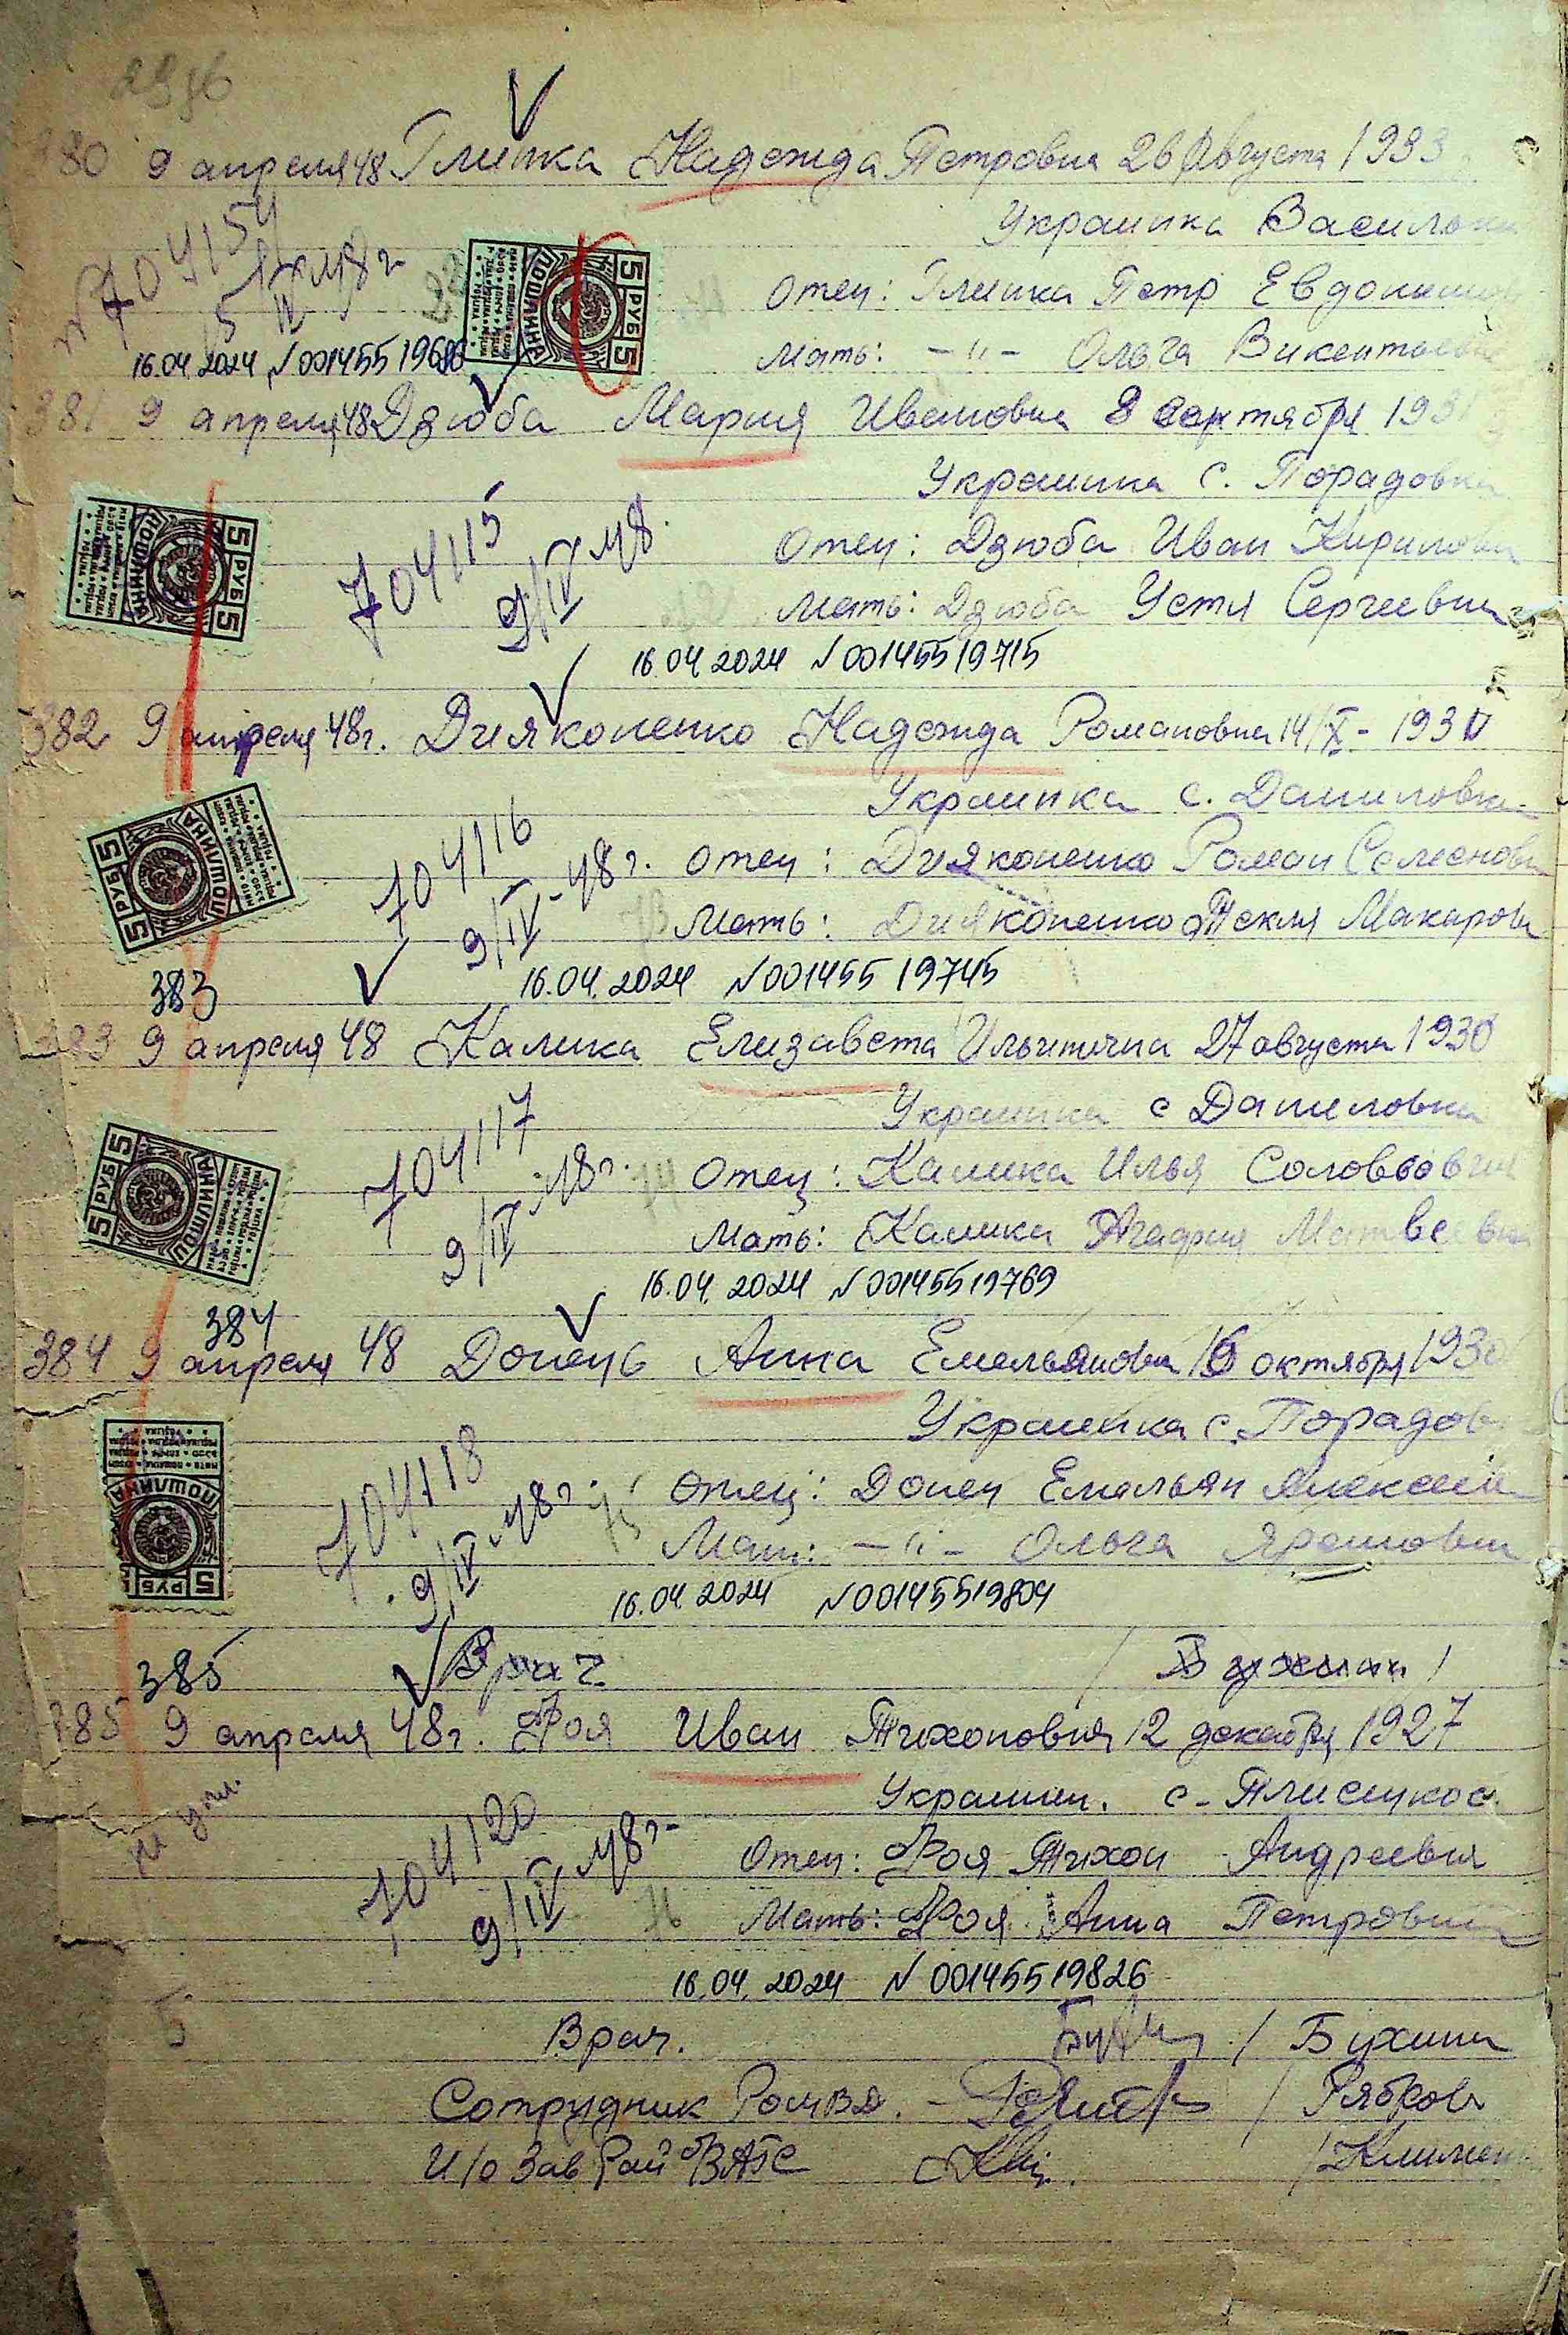 380 9 апреля 48 Глинка Надежда Петровна 26 Августа 1933
Украинка Васильк
704154
Отец: Глинка Петр Евдоким
5 IV 48 г
Мать: -"- Ольга Викентьевна
16.04.2024 N 00145519686
5 РУБ 5
ПОШЛИНА
381 9 апреля 48 Дзюба Мария Ивановна 8 сентября 193
Украинка с. Порадовка
5 РУБ 5
ПОШЛИНА
704115
9/IV 48.
Отец: Дзюба Иван Кирилови
Мать: Дзюба Устя Сергеевна
16.04.2024 N 00145519715
382 9 апреля 48г. Дияконенко Надежда Романовна 14/X - 193
Украинка с. Даниловка
5 РУБ 5
ПОШЛИНА
704116
9/IV-48 г.
Отец: Дияконенко Роман Семенови
Мать: Дияконенко Текля Макаровн
16.04.2024 N 00145519745
383
383 9 апреля 48 Калика Елизавета Ильинична 27 августа 1930
Украинка с Даниловка
5 РУБ 5
ПОШЛИНА
704117
9/IV 48г.
Отец: Калика Илья Соловьович
Мать: Калика Агафия Матвеевна
16.04.2024 N 00145519769
384
384 9 апреля 48 Донець Анна Емельяновн 16 октября 1930
Украинка с. Порадов
5 РУБ 5
ПОШЛИНА
704118
9/IV 48г.
Отец: Донец Емельян Алексееи
Мать: -"- Ольга
16.04.2024 N 00145519804
385
Врач
385 9 апреля 48г. Фоя Иван Тихонович 12 декабря 1927
Украинец. с-Плисецкое
704120
9/IV 48г-
Отец: Фоя Тихон Андреевич
Мать: Фоя Анна Петровна
16.04.2024 N 00145519826
Врач. / Бухина
Сотрудник РомВД. - / Рябков
И/о Зав Рай ЗАГС / Климен